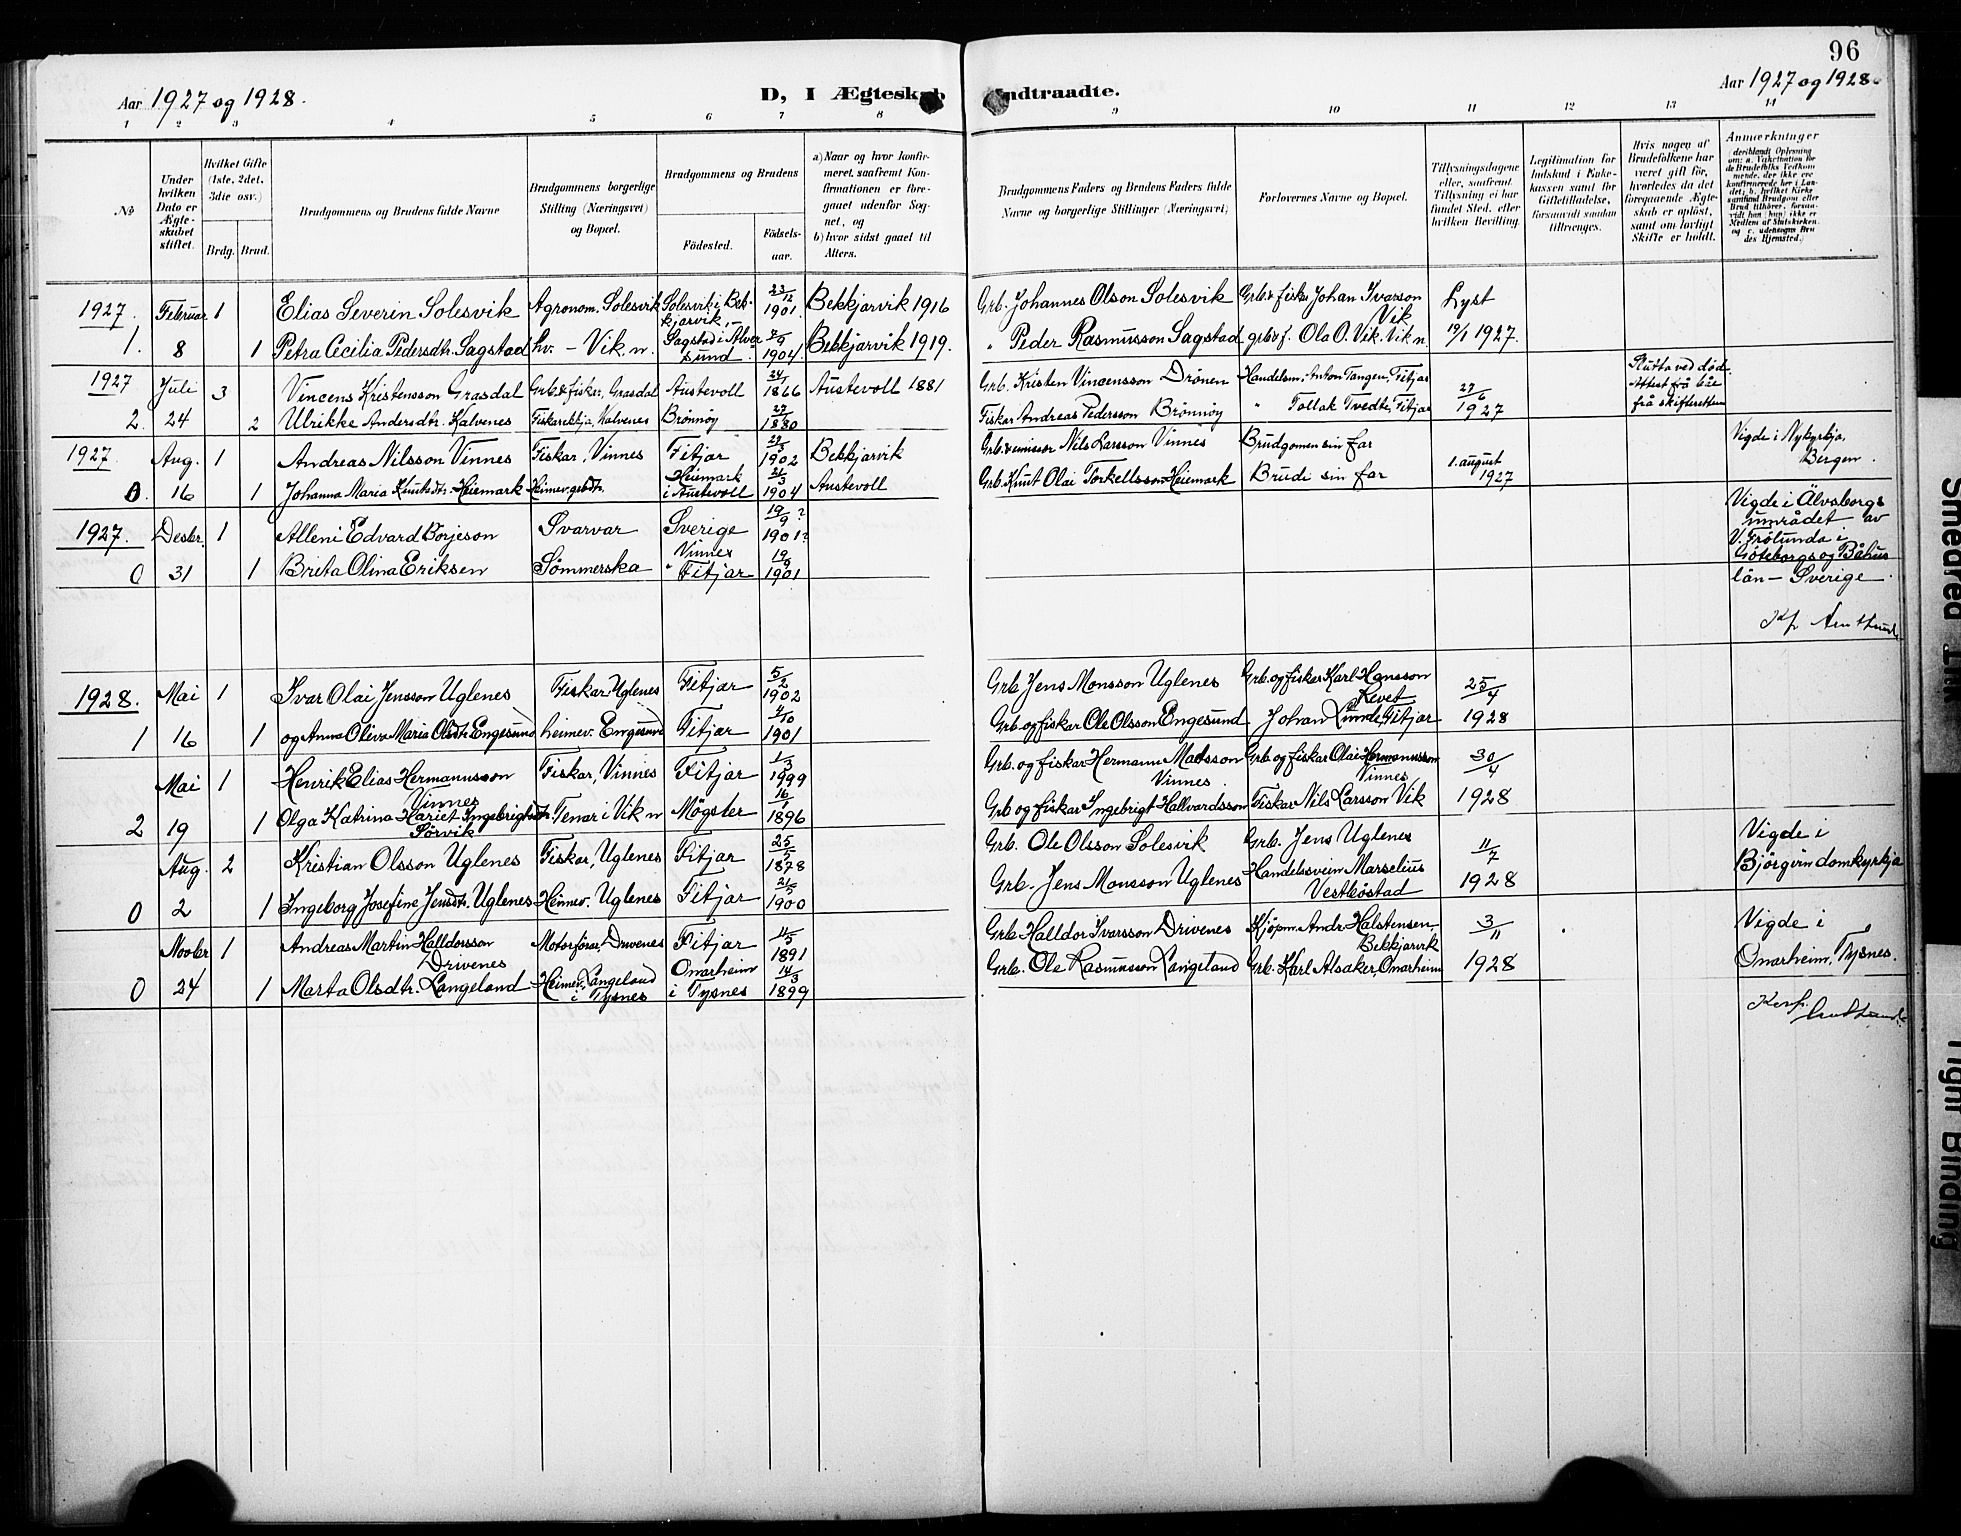 96
Aar 1927 og 1928.
D, I Ægteskab Indtraadte.
Aar 1927 og 1928.
1 2 3 4 5 6 7 8 9 10 11 12 13 14
No
Under hvilken Dato er Ægteskabet stiftet.
Hvilket Gifte (1ste, 2det, 3die osv.)
Brdg. Brud.
Brudgommens og Brudens fulde Navne
Brudgommens borgerlige Stilling (Næringsvei) og Bopæl.
Brudgommens og Brudens
Födested.
Födsels-aar.
a) Naar og hvor konfirmeret, saafremt Konfirmationen er foregaaet udenfor Sognet, og
b) hvor sidst gaaet til Alters.
Brudgommens Faders og Brudens Faders fulde Navne og borgerlige Stillinger (Næringsvei)
Forlovernes Navne og Bopæl.
Tillysningsdagene eller, saafremt Tillysning ei har fundet Sted, efter hvilken Bevilling.
Legitimation for Indskud i Enkekassen samt for Giftetilladelse, forsaavidt saadan tiltrænges.
Hvis nogen af Brudefolkene har været gift för, hvorledes da det foregaaende Ægteskab er oplöst, samt om lovligt Skifte er holdt.
Anmerkninger
(deriblandt Oplysning om: a. Vakcination for de Brudefolks Vedkommende, der ikke ere konfirmerede her i Landet; b. hvilket Kirkesamfund Brudgom eller Brud tilhörer, forsaavidt han (hun) ikke er Medlem af Statskirken, og c. udensogns Brudes Hjemsted.)
1927. Februar 1 Elias Severin Solesvik Agronom. Solesvik Solesvik i Bekkjarvik 23/12 1901. Bekkjarvik 1916 Grb. Johannes Olson Solesvik Grb. & fisker Johan Ivarson Vik Lyst
1. 8 1 Petra Cecilia Pedersdtr. Sagstad hv. – Vik. n. Sagstad i Alversund 7/9 1904. Bekkjarvik 1919. " Peder Rasmusson Sagstad grb & f. Ola O. Vik. Vik n. 19/1 1927.
1927 Juli 3 Vincens Kristensson Grasdal Grb. & fisker, Grasdal Austevoll 24/1 1866 Austevoll 1881 Grb. Kristen Vincensson Drönen Handelsm. Anton Tangen, Fitjar 27/6 1927 Slutta ved död. Attest frå båe frå skifteretten
2. 24 2 Ulrikke Andersdtr. Kalvenes Fiskarekkja, Kalvenes Brönnöy 27/1 1880 Fiskar Andreas Pedersson Brönnöy " Tollak Tvedte, Fitjar
1927 Aug. 1 Andreas Nilsson Vinnes Fiskar, Vinnes Fitjar 29/3 1902 Bekkjarvik Grb. & emissær Nils Larsson Vinnes Brudgomen sin far 1. august 1927 Vigde i Nykyrkja, Bergen.
0. 16 1 Johanna Maria Knutsdtr. Heiemark Heimev. gbdtr. Heiemark i Austevoll 24/3 1904 Austevoll Grb. Knut Olai Torkellsson Heiemark Brudi sin far
1927. Desbr. 1 Alleni Edvard Borjeson Svarvar Sverige 19/9? 1901? Vigde i Älvsborgs området av V. Frölunda i Göteborgs og Båhus län – Sverige.
0 31 1 Brita Olina Eriksen Sömmerska Vinnes " Fitjar 19/9 1901
Kf.
1928. Mai 1 Ivar Olai Jensson Uglenes Fiskar Uglenes Fitjar 5/2 1902 Grb. Jens Monsson Uglenes Grb. og fisker Karl Hansson 25/4 1928
1 16 1 og Anna Oliva Maria Olsdtr. Engesund heimev. Engesund Fitjar 4/10 1901 Grb. og fiskar Ole Olsson Engesund Johan Lunde, Fitjar
Mai 1 Henrik Elias Hermannsson Vinnes Fiskar, Vinnes Fitjar 1/3 1999 Grb. og fiskar Hermann Madsson Vinnes Grb. og fiskar Olai Hermannsson Vinnes 30/4 1928
2 19 1 Olga Katrina Hariet Ingebrigtsdtr. Sörvik Tenar i Vik n Mögster 16/1 1896 Grb og fiskar Ingebrigt Hallvardsson Fiskar Nils Larsson Vik
Aug. 2 Kristian Olsson Uglenes Fiskar, Uglenes Fitjar 25/7 1878 Grb. Ole Olsson Solesvik Grb. Jens Uglenes 11/7 1928 Vigde i Björgvin domkyrkja
0 2 1 Ingeborg Josefine Jensdtr. Uglenes Heimev. Uglenes Fitjar 21/5 1900 Grb. Jens Monsson Uglenes Handelssvein Marselius Vestböstad
Novbr 1 Andreas Martin Halldorsson Drivenes Motorförar, Drivenes Fitjar 11/5 1891 Grb. Halldor Ivarsson Drivenes Kjöpm. Andr. Halstensen Bekkjarvik 3/11 1928 Vigde i Onarheim, Tysnes.
0 24 1 Marta Olsdtr. Langeland Heimev. Langeland i Tysnes Onarheim i Tysnes 14/3 1899 Grb. Ole Rasmusson Langeland Grb. Karl Alsaker, Onarheim
Smeared Ink
Tight Binding